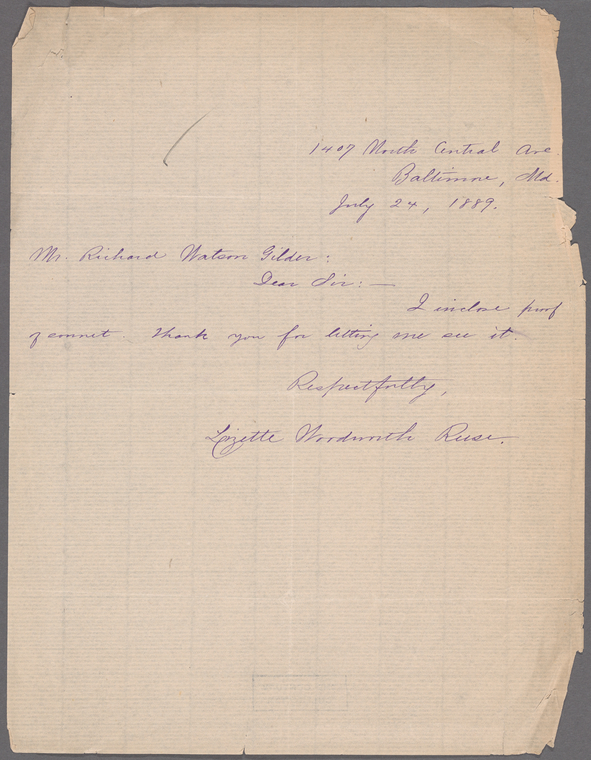 1407 North Central Ave.
Baltimore, Md.
July 24, 1889.
Mr. Richard Watson Gilder:
Dear Sir:—
I inclose proof
of sonnet. Thank you for letting me see it.
Respectfully,
Lizette Woodworth Reese.